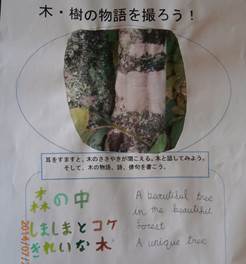 木・樹の物語を撮ろう！
耳をすますと、木のささやきが聞こえる。木と話してみよう。
そして、木の物語、詩、俳句を書こう。
森の中
しましまとコケ
きれいな木
A beautiful tree
in the beautiful
forest
A unique tree